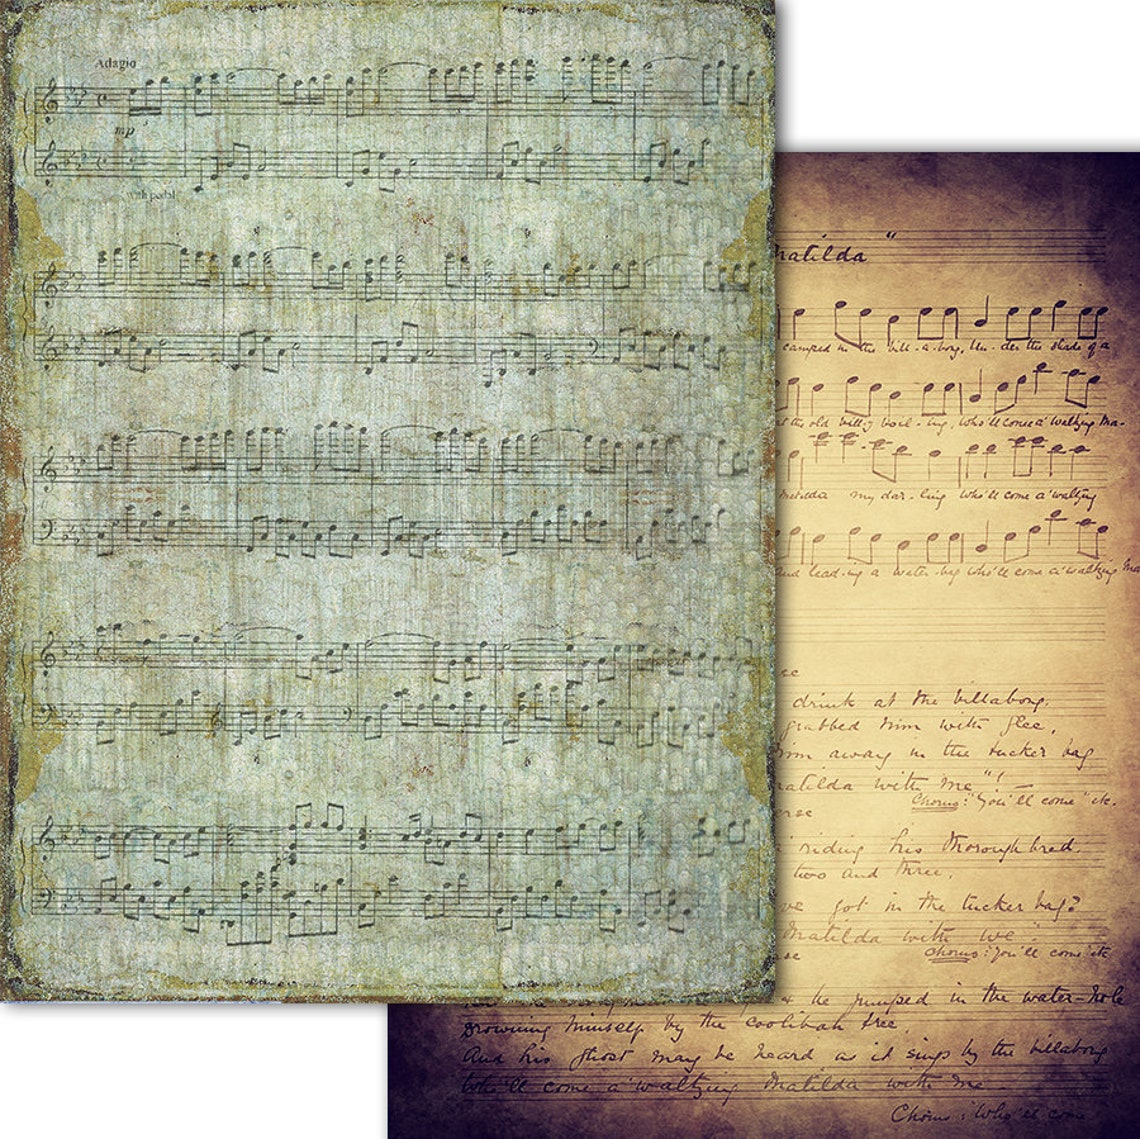 Adagio
mp
3
With pedal
Matilda "
camped in the bill-a-bong, Un-der the shade of a
at the old bill-y boil-ing, who'll come a' waltzing Ma-
Matilda my dar-ling who'll come a' waltzing
and lead-ing a water-bag who'll come a' waltzing Ma
se
drink at the billabong.
grabbed him with glee,
him away in the tucker bag
Matilda with me"!
Chorus: "You'll come" etc.
rse
riding his thoroughbred.
two and three.
've got in the tucker bag?
Matilda with we"
Chorus: You'll come etc
se
& he jumped in the water-hole
Drowning himself by the coolibah tree.
And his ghost may be heard as it sings by the billabong
Who'll come a' waltzing Matilda with me.
Chorus: Who'll come